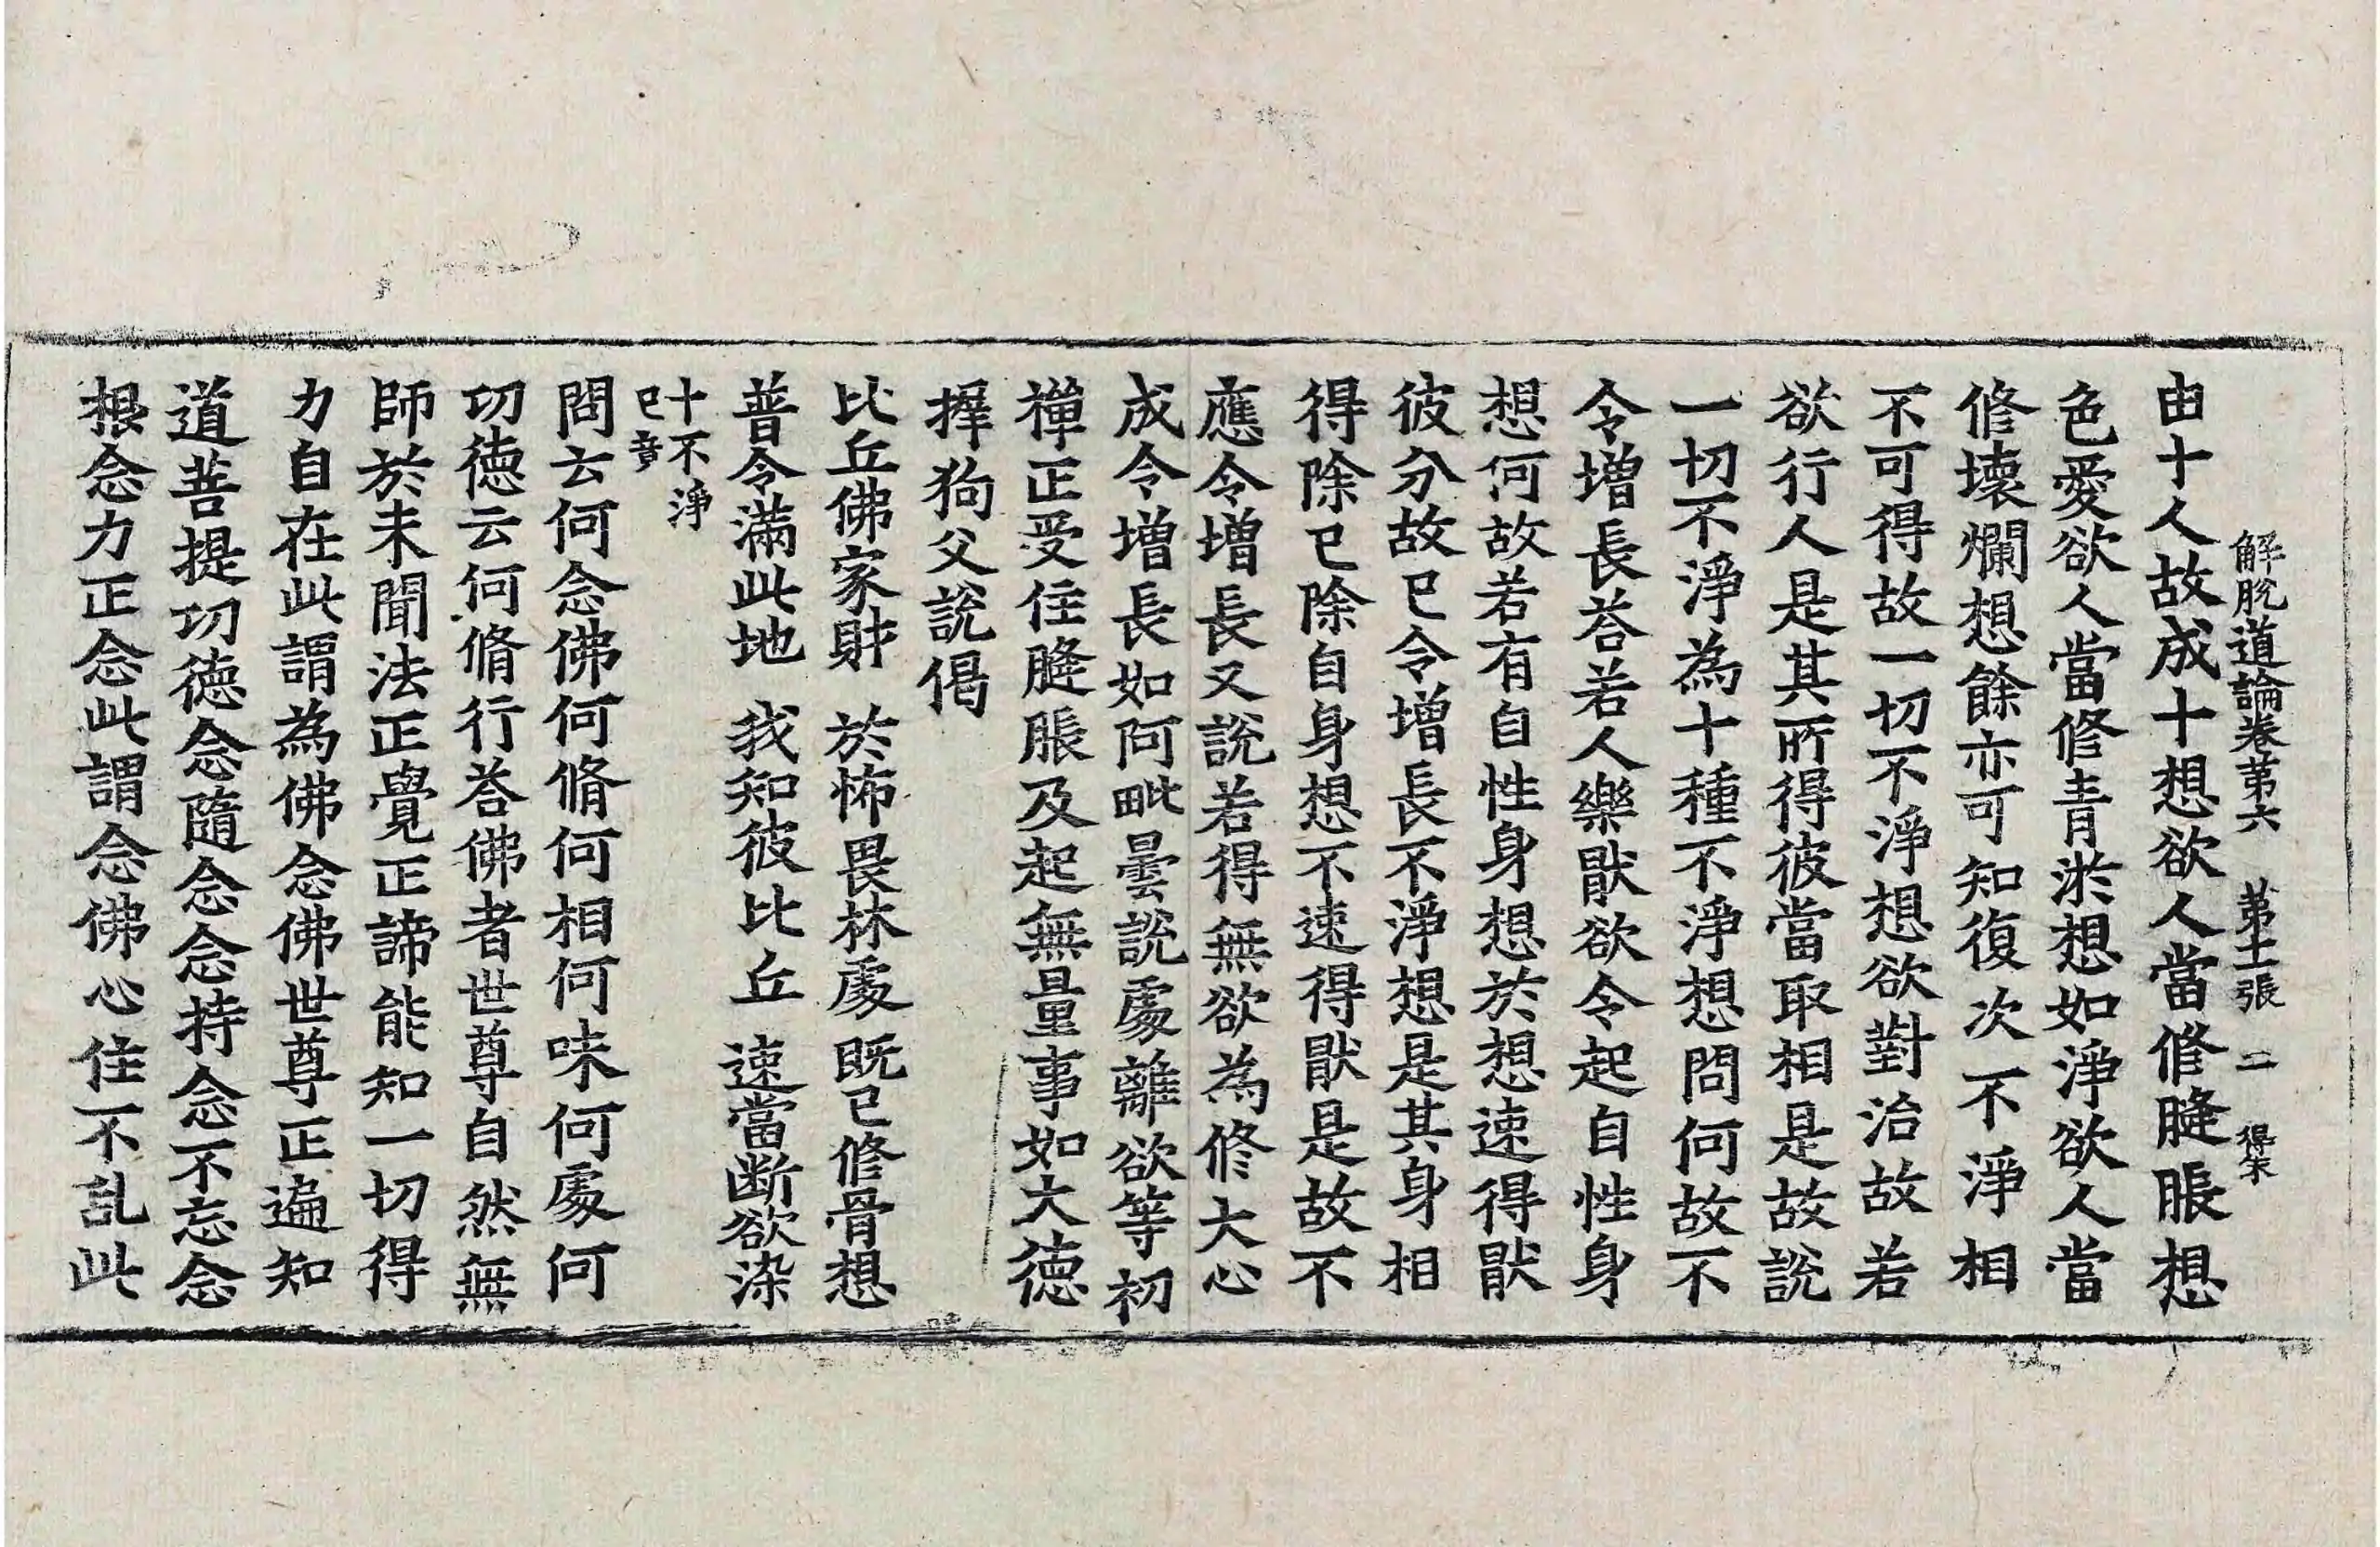 解脫道論卷第六　第十一張　二　得朱
由十人故成十想欲人當修膖脹想
色愛欲人當修青淤想如淨欲人當
修壞爛想餘亦可知復次不淨相
不可得故一切不淨想欲對治故若
欲行人是其所得彼當取相是故說
一切不淨為十種不淨想問何故不
令增長荅若人樂猒欲令起自性身
想何故若有自性身想於想速得猒
彼分故已令增長不淨想是其身相
得除已除自身想不速得猒是故不
應令增長又說若得無欲為修大心
成令增長如阿毗曇說處離欲等初
禪正受住膖脹及起無量事如大德
摩狗父說偈
比丘佛家財　於怖畏林處　既已修骨想
普令滿此地　我知彼比丘　速當断欲染
十不淨
已竟
問云何念佛何脩何相何味何處何
功德云何脩行荅佛者世尊自然無
師於未聞法正覺正諦能知一切得
力自在此謂為佛念佛世尊正遍知
道菩提功德念隨念念持念不忘念
根念力正念此謂念佛心住不乱此